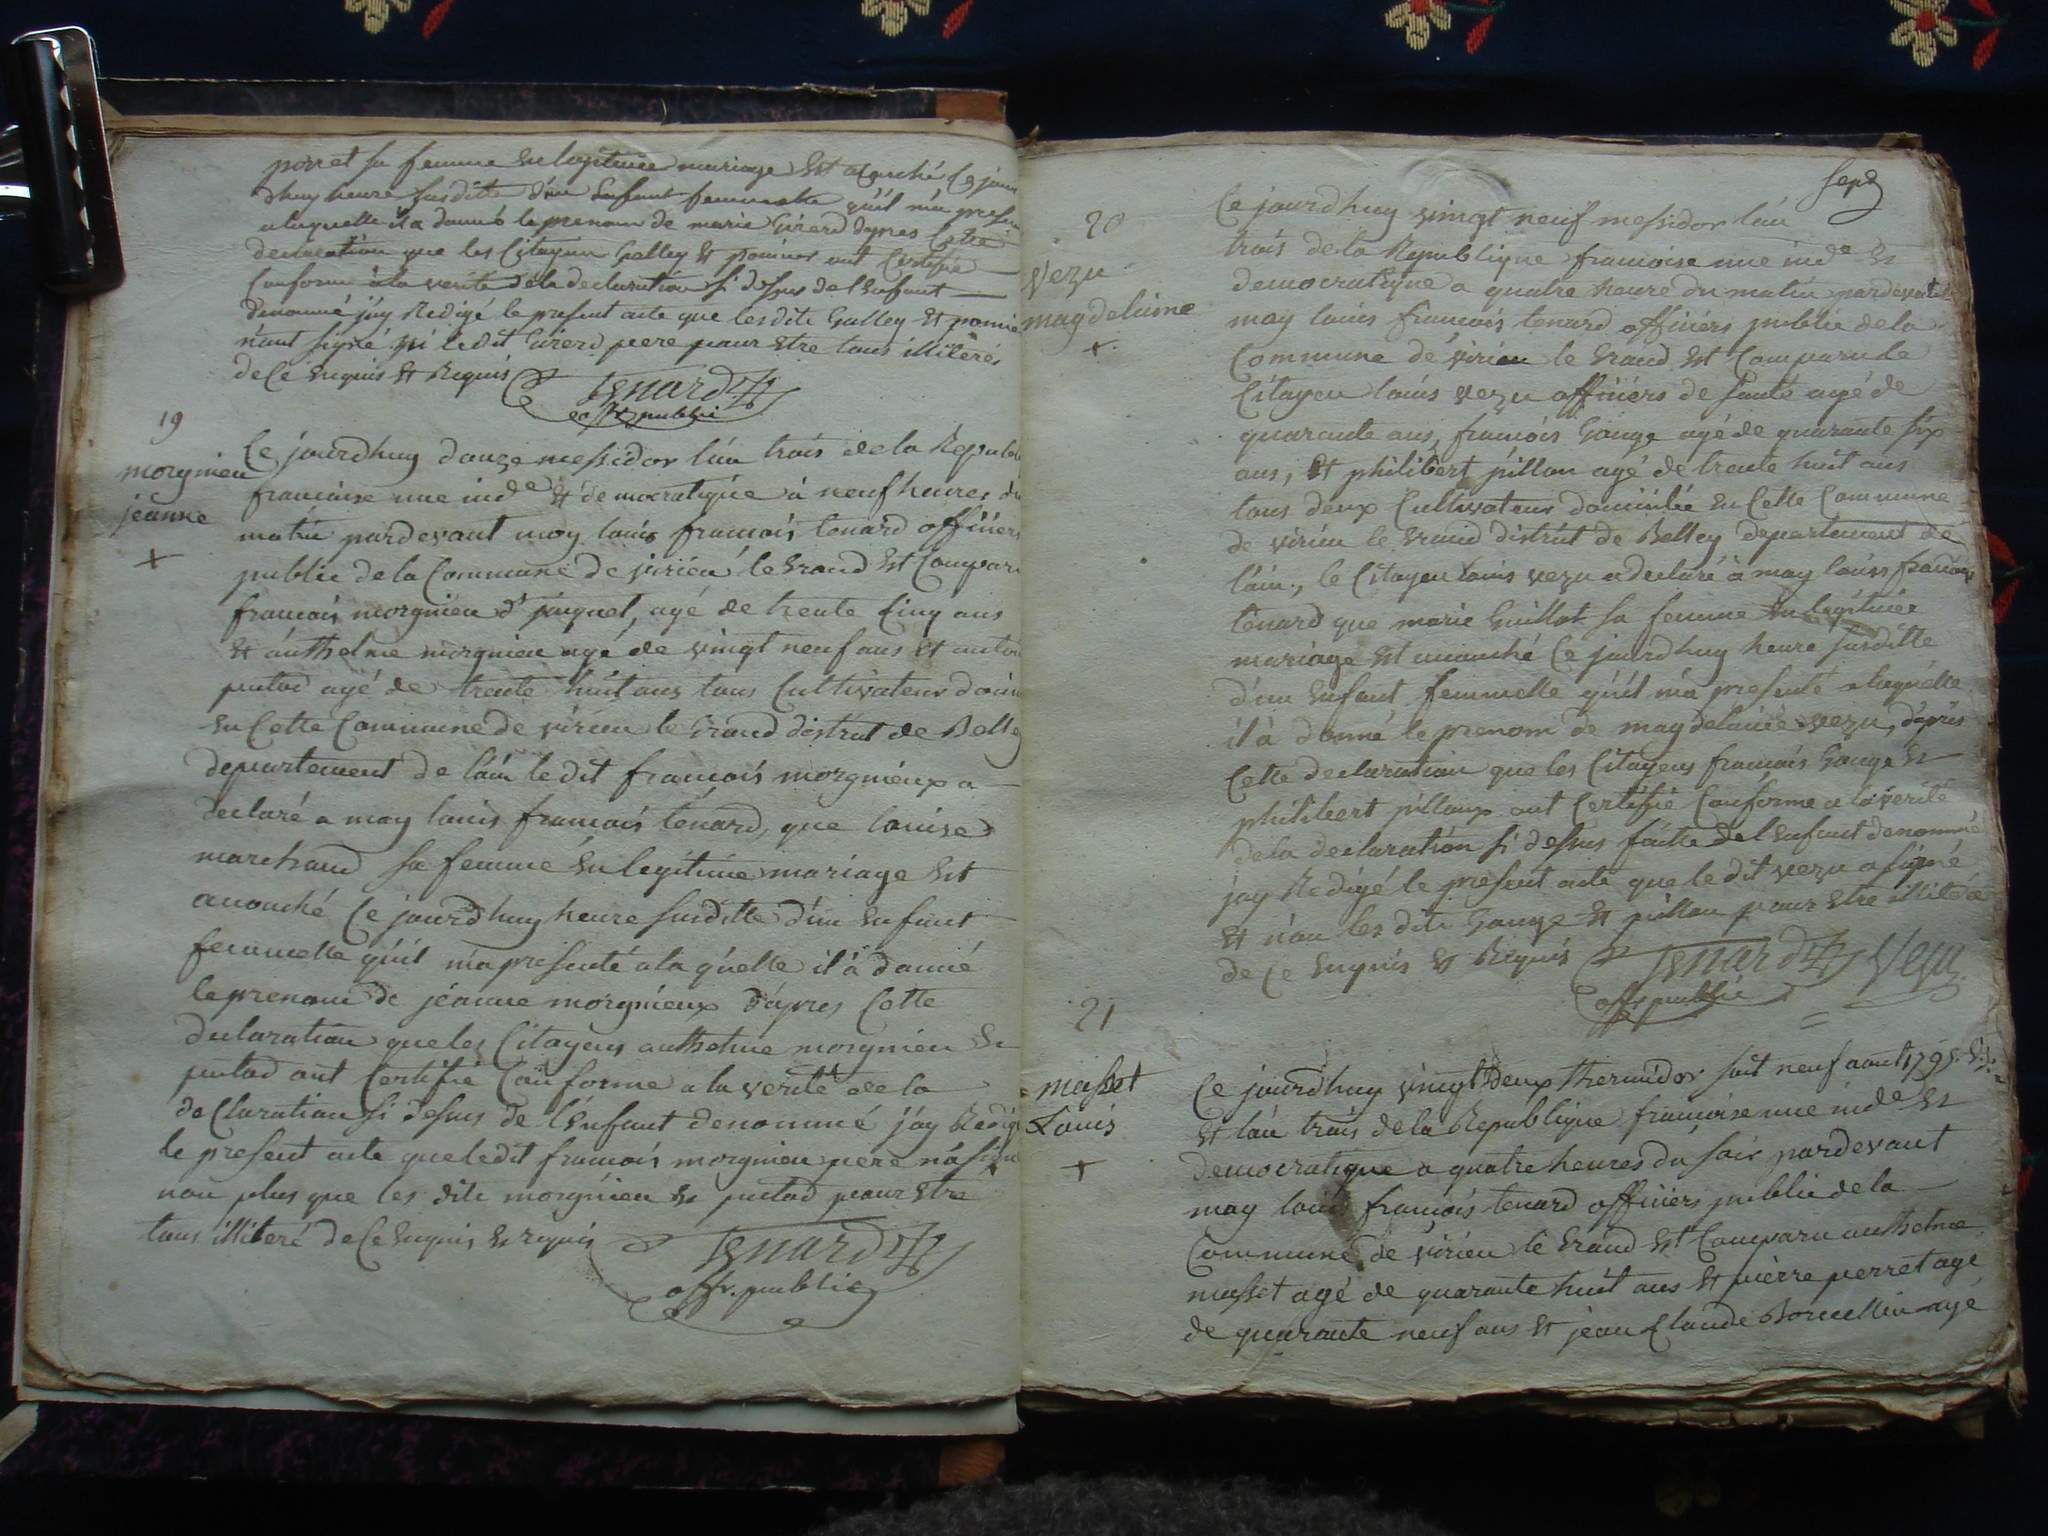 porret sa femme en legitime mariage est acouché ce jour
dhuy heure susditte d'un enfant femmelle qu'il m'a presenté
alaquelle il a donné le prenom de marie Girerd dapres Cette
declaration que les Citoyens Galley et pomier ont Certifié
Conforme à la verité de la declaration si dessus de l'enfant
denommé j'ay Redigé le present acte que lesdits Galley et pomier
n'ont signé ni ledit Girerd pere pour etre tous illiterés
de Ce enquis et Requis Tenard
off. public
19
morgnieu
jeanne
+
Ce jourdhuy douze messidor l'an trois de la Republi
francoise une inde et democratique à neuf heures du
matin pardevant moy louis francois tenard officiers
public de la Commune de virieu le Grand est Comparu
francois morgnieu dt juquet, agé de trente Cinq ans
et anthelme morgnieu agé de vingt neuf ans et antoi
putod agé de trente huit ans tous Cultivateur domi
en Cette Commune de virieu le Grand district de Belley
departement de l'ain ledit francois morgnieux a
declaré a moy louis francois tenard, que louise
marchand sa femme en legitime mariage est
acouché Ce jourdhuy heure susditte d'un enfant
femmelle qu'il m'a presenté a la quelle il à donné
le prenom de jeanne morgnieux d'apres Cette
declaration que les Citoyens anthelme morgnieu et
putod ont Certifié Conforme a la verité de la
declaration si dessus de l'enfant denommé j'ay Redigé
le present acte que ledit francois morgnieu pere n'a signé
non plus que les dits morgnieu et putod pour etre
tous illiteré de Ce enquis et requis
Tenard
offr. public
sept
20
vezu
magdeleine
+
Ce jourdhuy vingt neuf messidor l'an
trois de la Republique francoise une inde et
democratique a quatre heure du matin pardevant
moy louis francois tenard officiers public de la
Commune de virieu le Grand est Comparu le
Citoyen louis vezu officiers de santé agé de
quarante ans, francois Gouge agé de quarante six
ans, et philibert pillon agé de trente huit ans
tous deux Cultivateurs domiciliés en Cette Commune
de virieu le Grand district de Belley departement de
l'ain, le Citoyen louis vezu a declaré à moy louis francois
tenard que marie Guillot sa femme en legitime
mariage est acouché Ce jourdhuy heure susditte
d'un enfant femmelle qu'il m'a presenté alaquelle
il à donné le prenom de magdelaine vezu, d'apres
Cette declaration que les Citoyens francois Gouge et
philibert pilloux ont Certifié Conforme a la verité
de la declaration si dessus faitte de l'enfant denommé
jay Redigé le present acte que ledit vezu a signé
et non les dits Gouge et pillon pour etre illiteré
de Ce enquis et Requis Tenard Vezu
off. public
21
masset
Louis
+
Ce jourdhuy vingt deux thermidor soit neuf aout 1795
et l'an trois de la Republique francoise une inde et
democratique a quatre heures du soir pardevant
moy louis francois tenard officiers public de la
Commune de virieu le Grand est Comparu anthelme
masset agé de quarante huit ans et pierre perret agé
de quarante neuf ans et jean Claude Borcellin agé